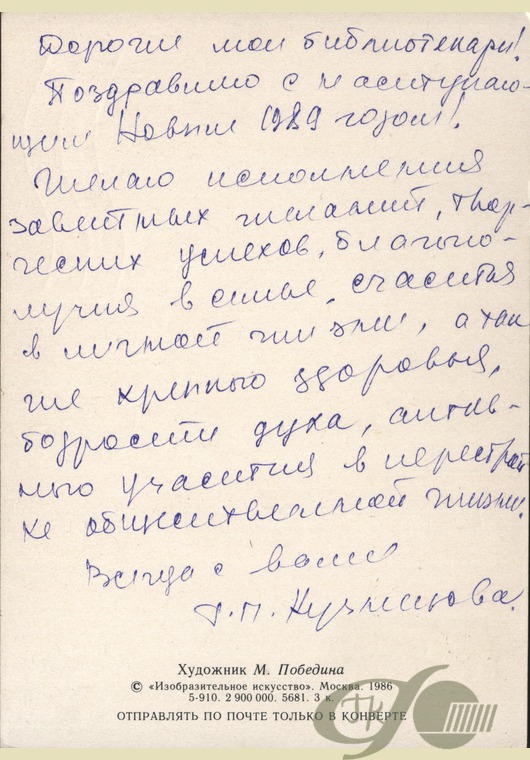 Дорогие мои библиотекари!
Поздравляю с наступаю-
щим Новым 1989 годом!
Желаю исполнения
заветных желаний, твор-
ческих успехов, благопо-
лучия в семье, счастья
в личной жизни, а так
же крепкого здоровья,
бодрости духа, актив-
ного участия в перестрой
ке общественной жизни.
Всегда с вами
Г.П. Кузнецова.
Художник М. Победина
© «Изобразительное искусство». Москва. 1986
5-910. 2 900 000. 5681. 3 к.
ОТПРАВЛЯТЬ ПО ПОЧТЕ ТОЛЬКО В КОНВЕРТЕ